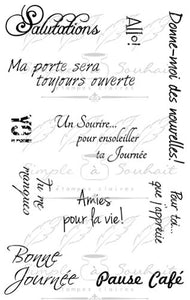 Salutations
Allo!
Donne-moi des nouvelles!
Ma porte sera
toujours ouverte
YO!
Un Sourire...
pour ensoleiller
ta Journée
Simple à Souhait
étampes claires
Tu me
manques
Pour toi...
que j'apprécie
Amies
pour la vie!
Bonne
Journée
Pause Café